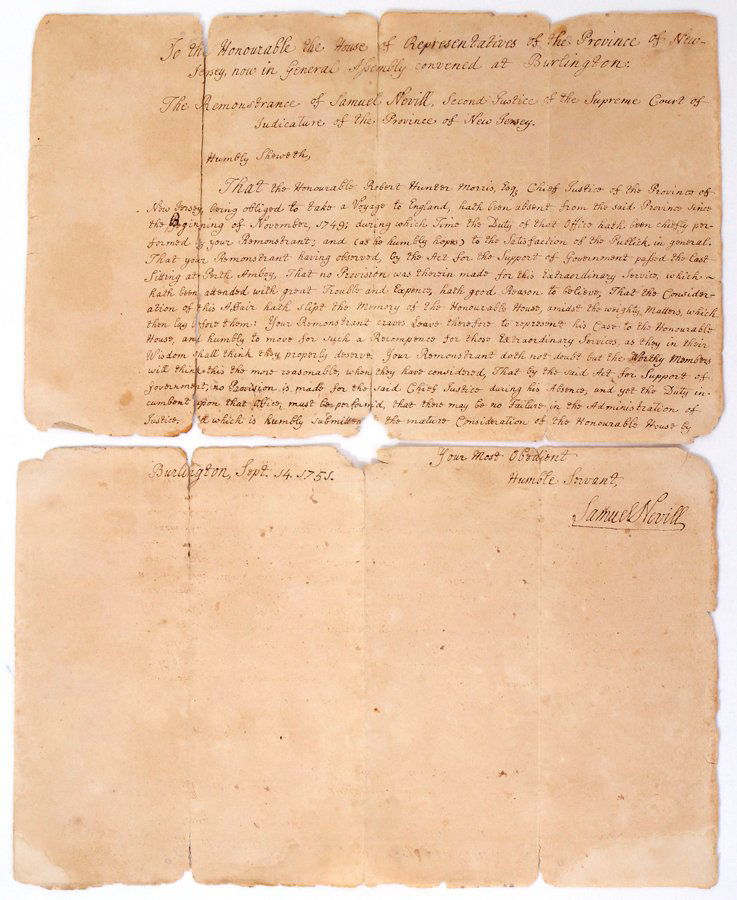 To the Honourable the House of Representatives of the Province of New-
Jersey, now in General Assembly convened at Burlington:
The Remonstrance of Samuel Nevill, Second Justice of the Supreme Court of
Judicature of the Province of New Jersey.
Humbly Sheweth,
That the Honourable Robert Hunter Morris, Esq, Chief Justice of the Province of
New Jersey, being obliged to take a Voyage to England, hath been absent from the said Province since
the Beginning of November, 1749; during which Time the Duty of that Office hath been chiefly per-
formed by your Remonstrant; and (as he humbly hopes) to the Satisfaction of the Publick in general.
That your Remonstrant having observed, by the Act for the Support of Government passed the last
Sitting at Perth Amboy, That no Provision was therein made for this Extraordinary Service, which
hath been attended with great Trouble and Expence, hath good Reason to believe, That the Consider-
ation of this Affair hath slipt the Memory of the Honourable House, amidst the weighty Matters, which
then lay before them: Your Remonstrant craves Leave therefore to represent his Case to the Honourable
House, and humbly to move for such a Recompence for those Extraordinary Services, as they in their
Wisdom shall think they properly deserve. Your Remonstrant doth not doubt but the Worthy Members
will think this the more reasonable, when they have considered, That by the said Act for Support of
Government, no Provision is made for the said Chief Justice during his Absence, and yet the Duty in-
cumbent upon that Office, must be performed, that there may be no Failure in the Administration of
Justice. which is humbly submitted to the mature Consideration of the Honourable House by
Your Most Obedient
Burlington, Sept. 14. 1751.
Humble Servant,
Samuel Nevill